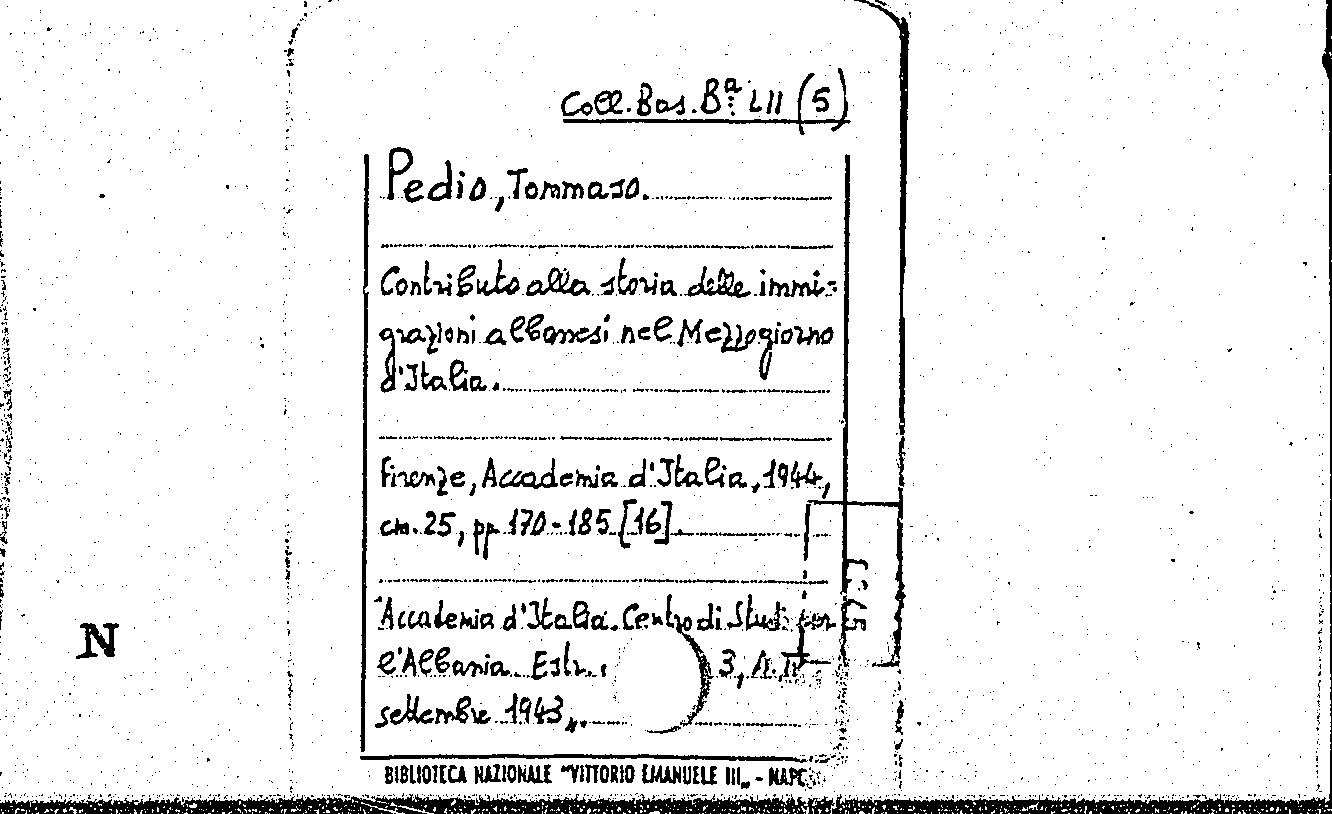 Coll. Bas. Bª LII (5)
Pedio, Tommaso.
Contributo alla storia delle immi=
grazioni albanesi nel Mezzogiorno
d'Italia.
Firenze, Accademia d'Italia, 1944,
cm. 25, pp. 170-185 [16].
"Accademia d'Italia. Centro di Studi per
N
l'Albania. Estr. 3, A. II
settembre 1943„.
BIBLIOTECA NAZIONALE "VITTORIO EMANUELE III„ -